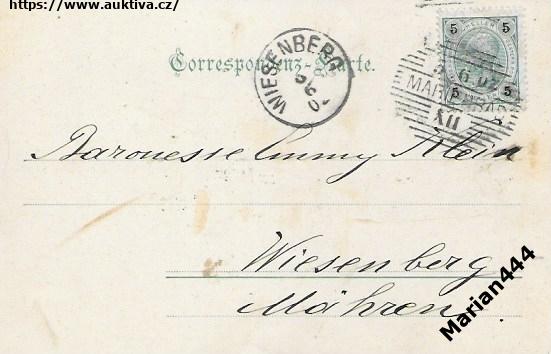 https://www.auktiva.cz/
5 5
Correspondenz-Karte.
WIESENBERG
5 5
MARIENBAD
XII
Baronesse Emmy Klein
Wiesenberg
Mähren
Marian444